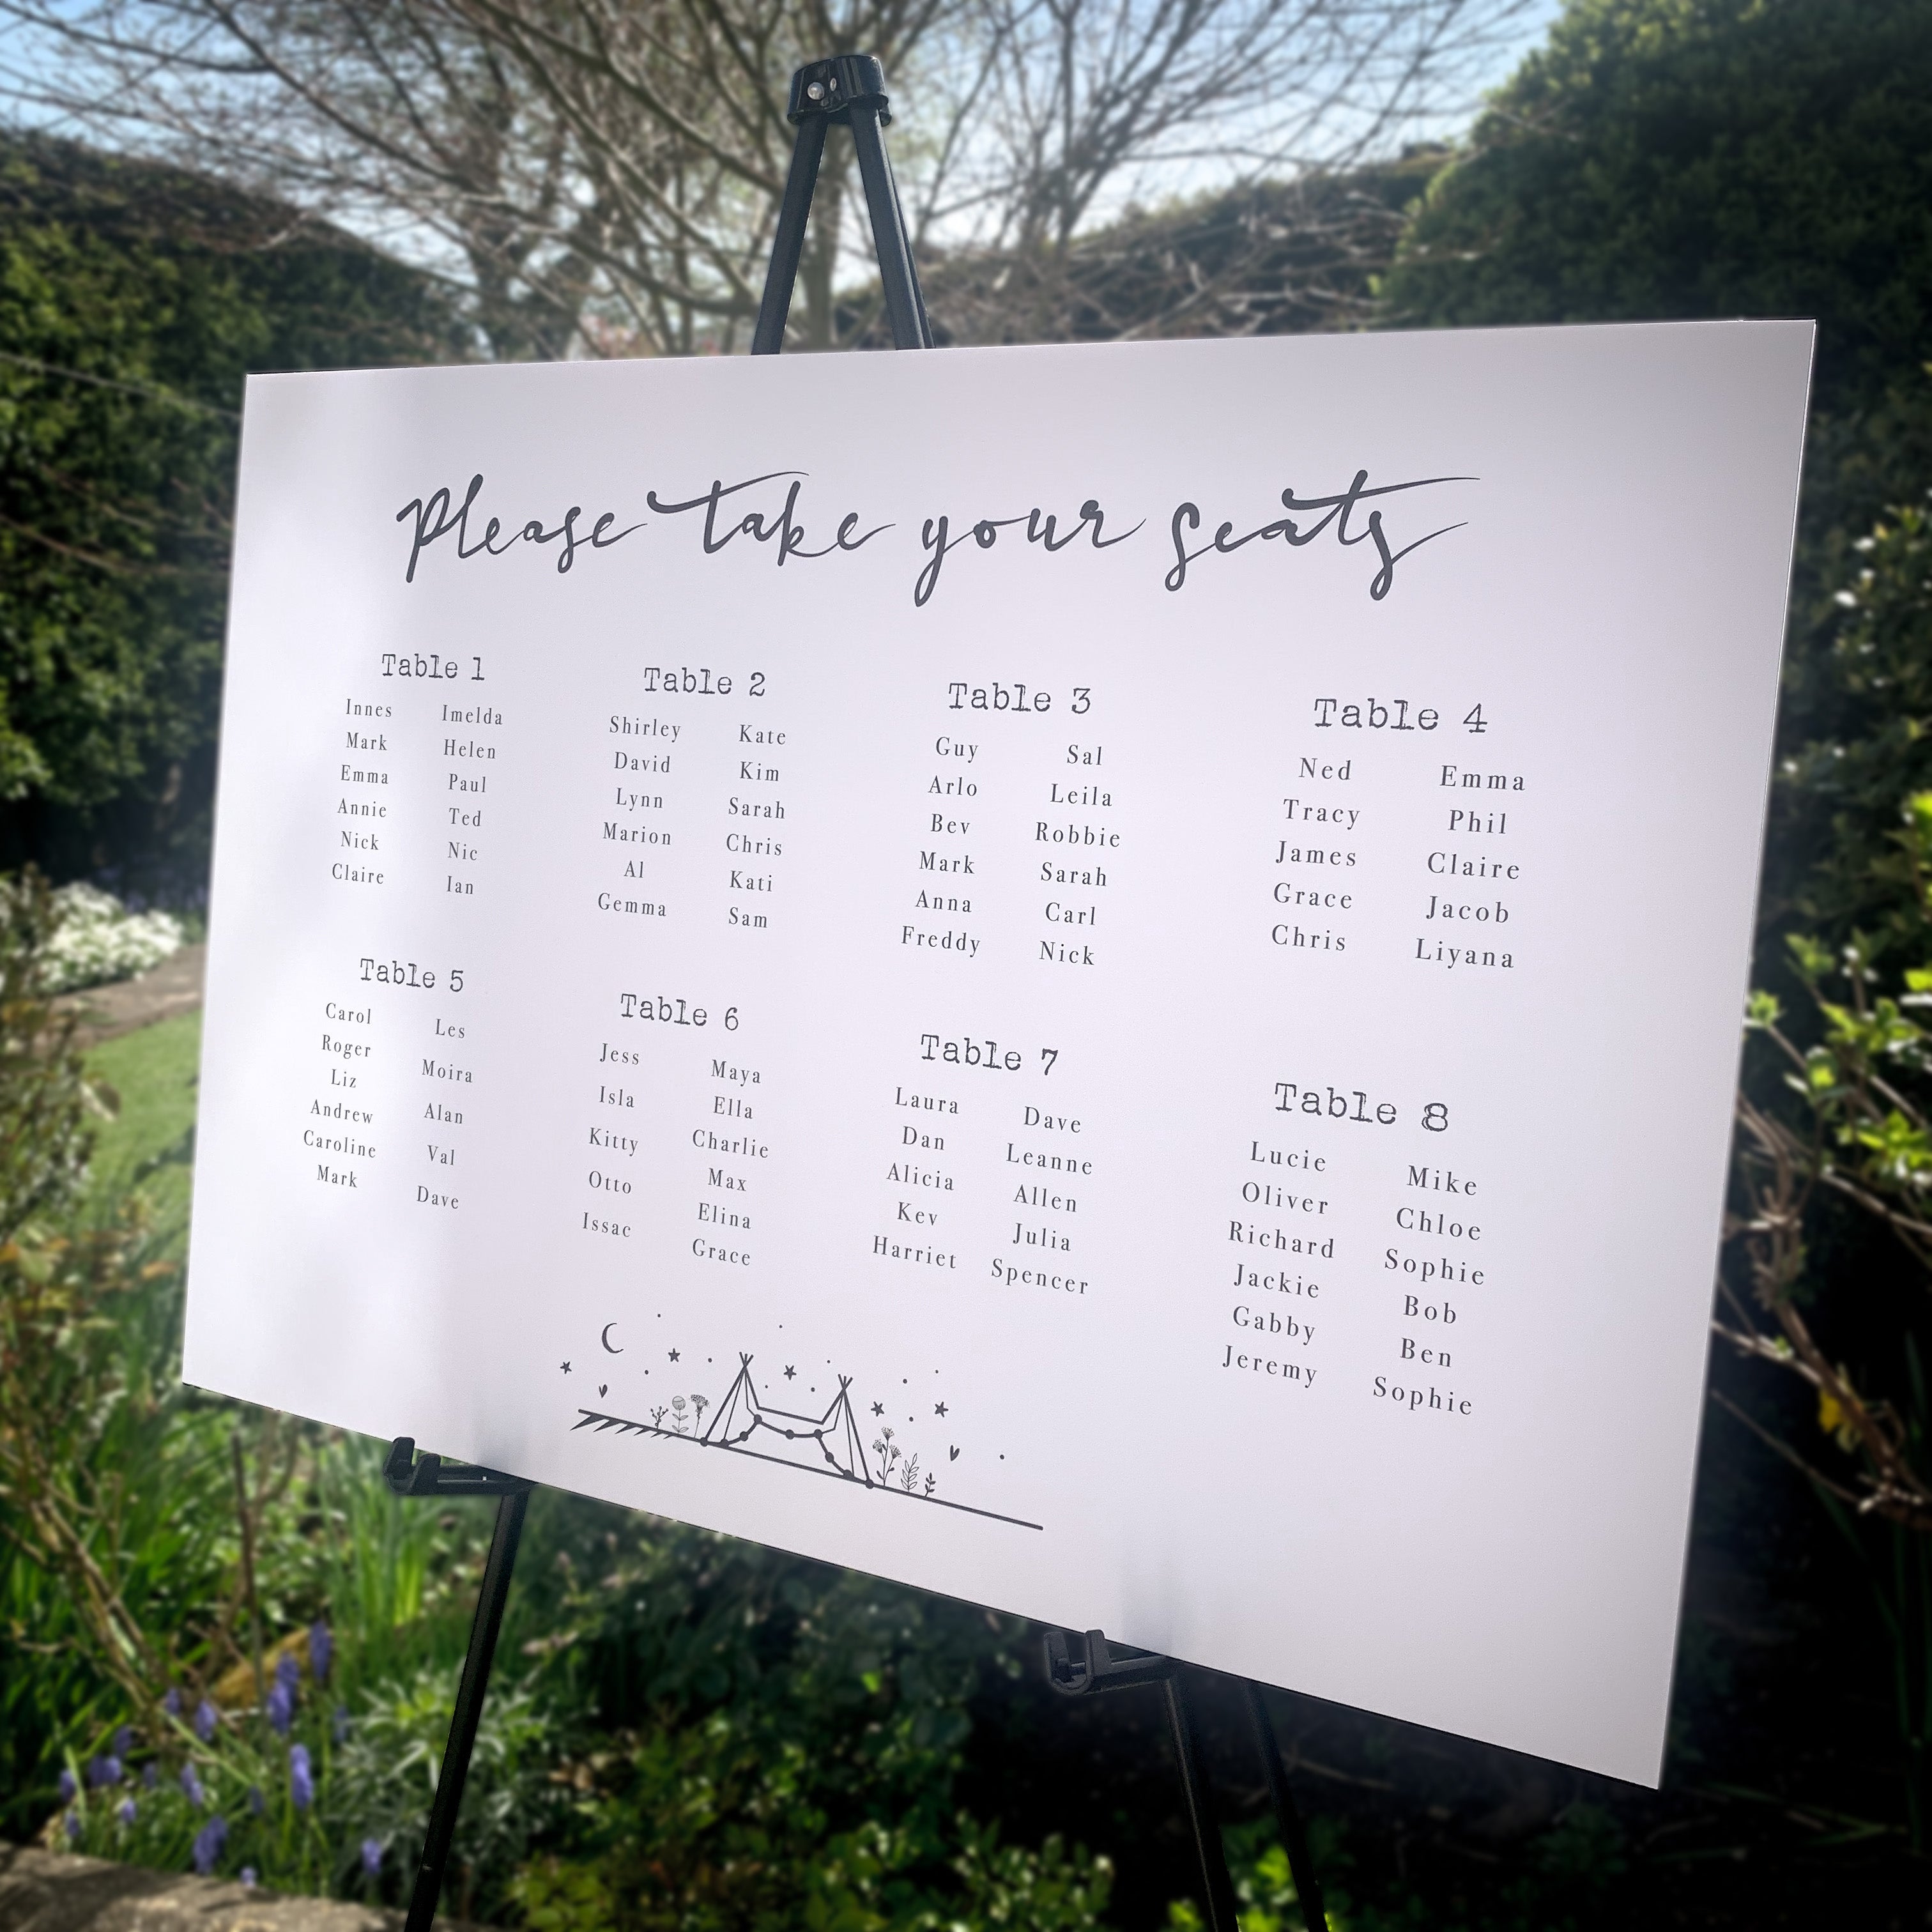 Please take your seats
Table 1
Innes Imelda
Mark Helen
Emma Paul
Annie Ted
Nick Nic
Claire Ian
Table 2
Shirley Kate
David Kim
Lynn Sarah
Marion Chris
Al Kati
Gemma Sam
Table 3
Guy Sal
Arlo Leila
Bev Robbie
Mark Sarah
Anna Carl
Freddy Nick
Table 4
Ned Emma
Tracy Phil
James Claire
Grace Jacob
Chris Liyana
Table 5
Carol
Roger
Liz
Andrew
Caroline
Mark
Les
Moira
Alan
Val
Dave
Table 6
Jess
Isla
Kitty
Otto
Issac
Maya
Ella
Charlie
Max
Elina
Grace
Table 7
Laura Dave
Dan Leanne
Alicia Allen
Kev Julia
Harriet Spencer
Table 8
Lucie Mike
Oliver Chloe
Richard Sophie
Jackie Bob
Gabby Ben
Jeremy Sophie